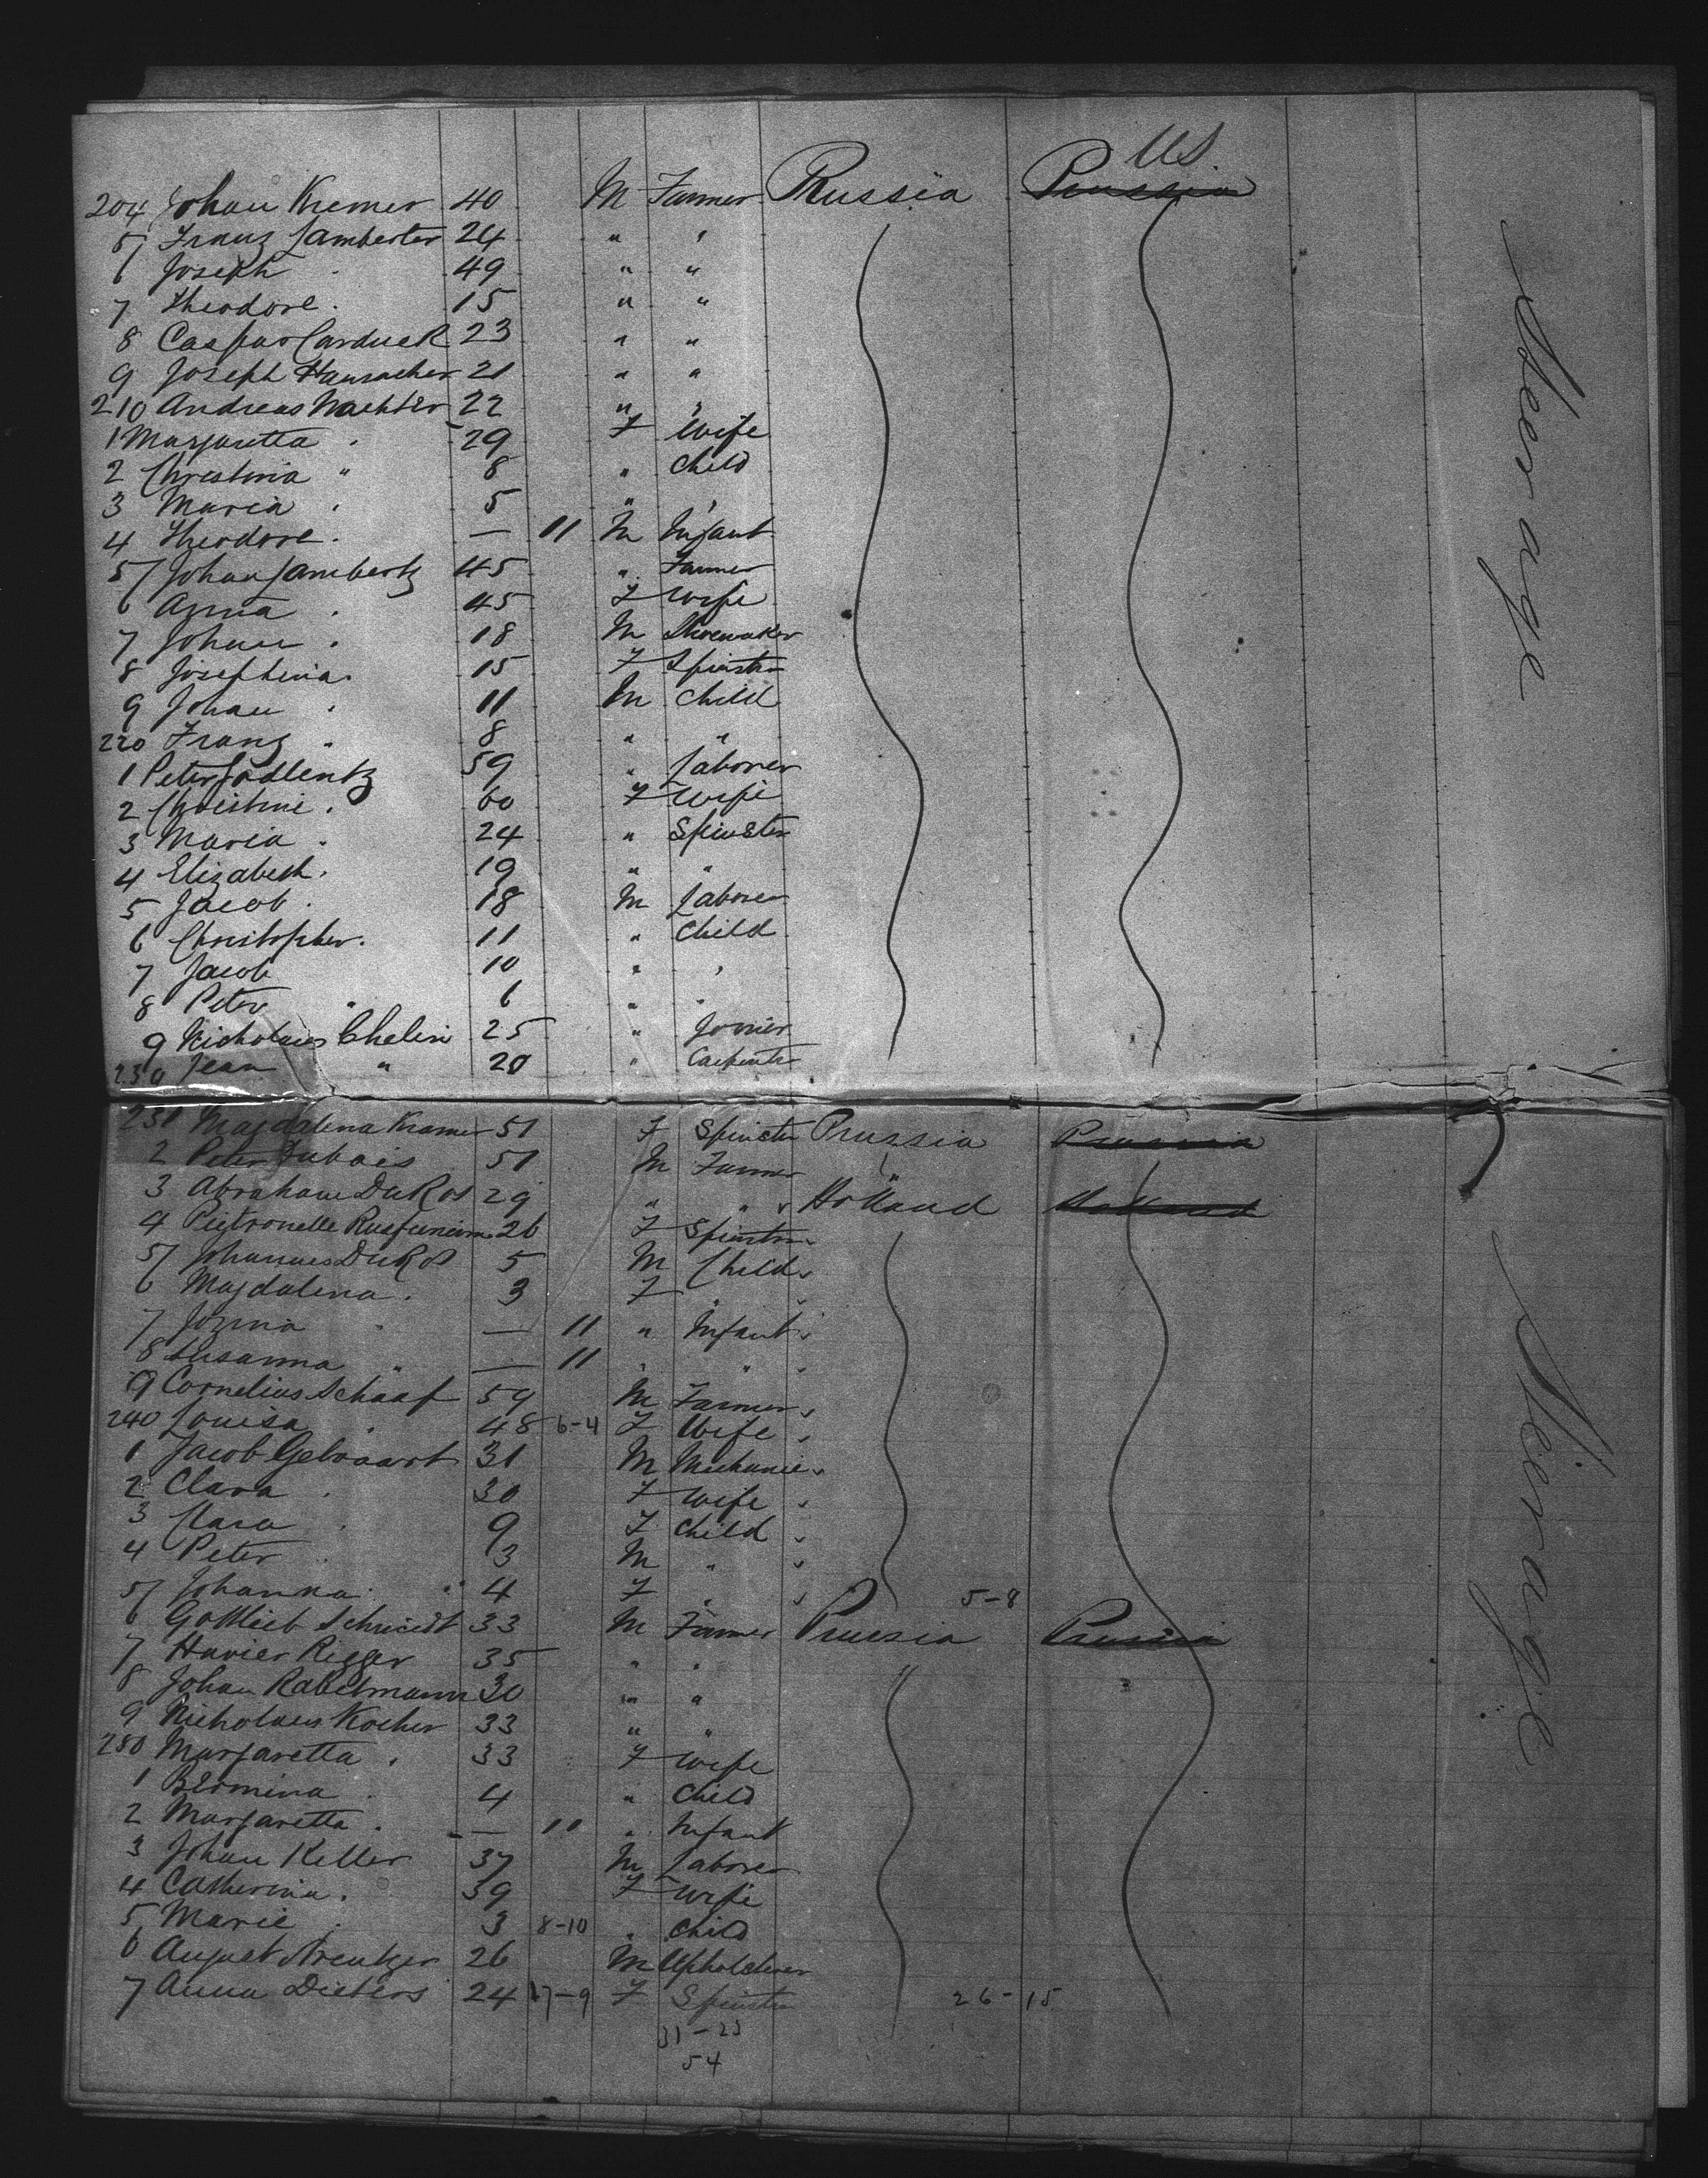 US
204 Johan Kremer 40 M Farmer Prussia Prussia
5 Franz Lamberter 24 " "
6 Joseph . 49 " "
7 Theodore . 15 " "
8 Caspar Carduck 23 " "
9 Joseph 21 " "
210 Andreas Wachter 22 " "
1 Margaretta . 29 F Wife
2 Christina " 8 " Child
3 Maria . 5 " "
4 Theodore . — 11 M Infant
5 Johan Lambertz 45 " Farmer
6 Anna . 45 F Wife
7 Johan . 18 M Shoemaker
8 Josephina . 15 F Spinster
9 Johan . 11 M Child
220 Franz . 8 " "
1 Peter 59 " Laborer
2 Christine . 60 F Wife
3 Maria . 24 " Spinster
4 Elizabeth . 19 " "
5 Jacob . 18 M Laborer
6 Christopher . 11 " Child
7 Jacob 10 " "
8 Peter " 6 " "
9 Nicholaus Chelin 25 " Joiner
230 Jean " 20 " Carpenter
Steerage
231 Magdalena Kramer 51 F Spinster Prussia Prussia
2 Peter Dubois 51 M Farmer "
3 Abraham DuRos 29 " " Holland Holland
4 Pietronelle 26 F Spinster
5 Johannes DuRos 5 M Child
6 Magdalena . 3 F "
7 — 11 " Infant
8 Susanna " — 11 " "
9 Cornelius Schaaf 59 M Farmer
240 Louisa . 48 6-4 F Wife
1 Jacob Gebraart 31 M Mechanic
2 Clara . 30 F Wife
3 Clara . 9 F Child
4 Peter . 3 M "
5 Johanna " 4 F " 5-8
6 Gottlieb Schmidt 33 M Farmer Prussia Prussia
7 Xavier Rigger 35 " "
8 Johan Rabelmann 30 " "
9 Nicholaus Kocher 33 " "
250 Margaretta . 33 F Wife
1 4 " Child
2 Margaretta . — 11 " Infant
3 Johan Keller 37 M Laborer
4 Catherina . 39 F Wife
5 Marie . 3 8-10 " Child
6 August 26 M Upholsterer
7 Anna Dieters 24 17-9 F Spinster 26-15
31-23
54
Steerage